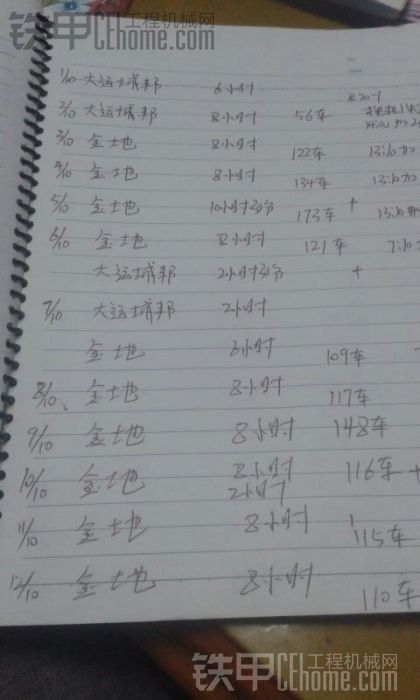 铁甲 工程机械网 cehome.com
1/10 大运城邦 8小时
2/10 大运城邦 8小时 56车
3/10 金地 8小时 122车 13:10加
4/10 金地 8小时 134车 13:10加
5/10 金地 10小时30分 173车 + 13:10加
6/10 金地 8小时 121车 7:10加
大运城邦 2小时30分 +
7/10 大运城邦 2小时
金地 6小时 109车
8/10 金地 8小时 117车
9/10 金地 8小时 148车
10/10 金地 8小时 116车 +
2小时
11/10 金地 8小时 115车
12/10 金地 8小时 110车
铁甲 工程机械网 cehome.com